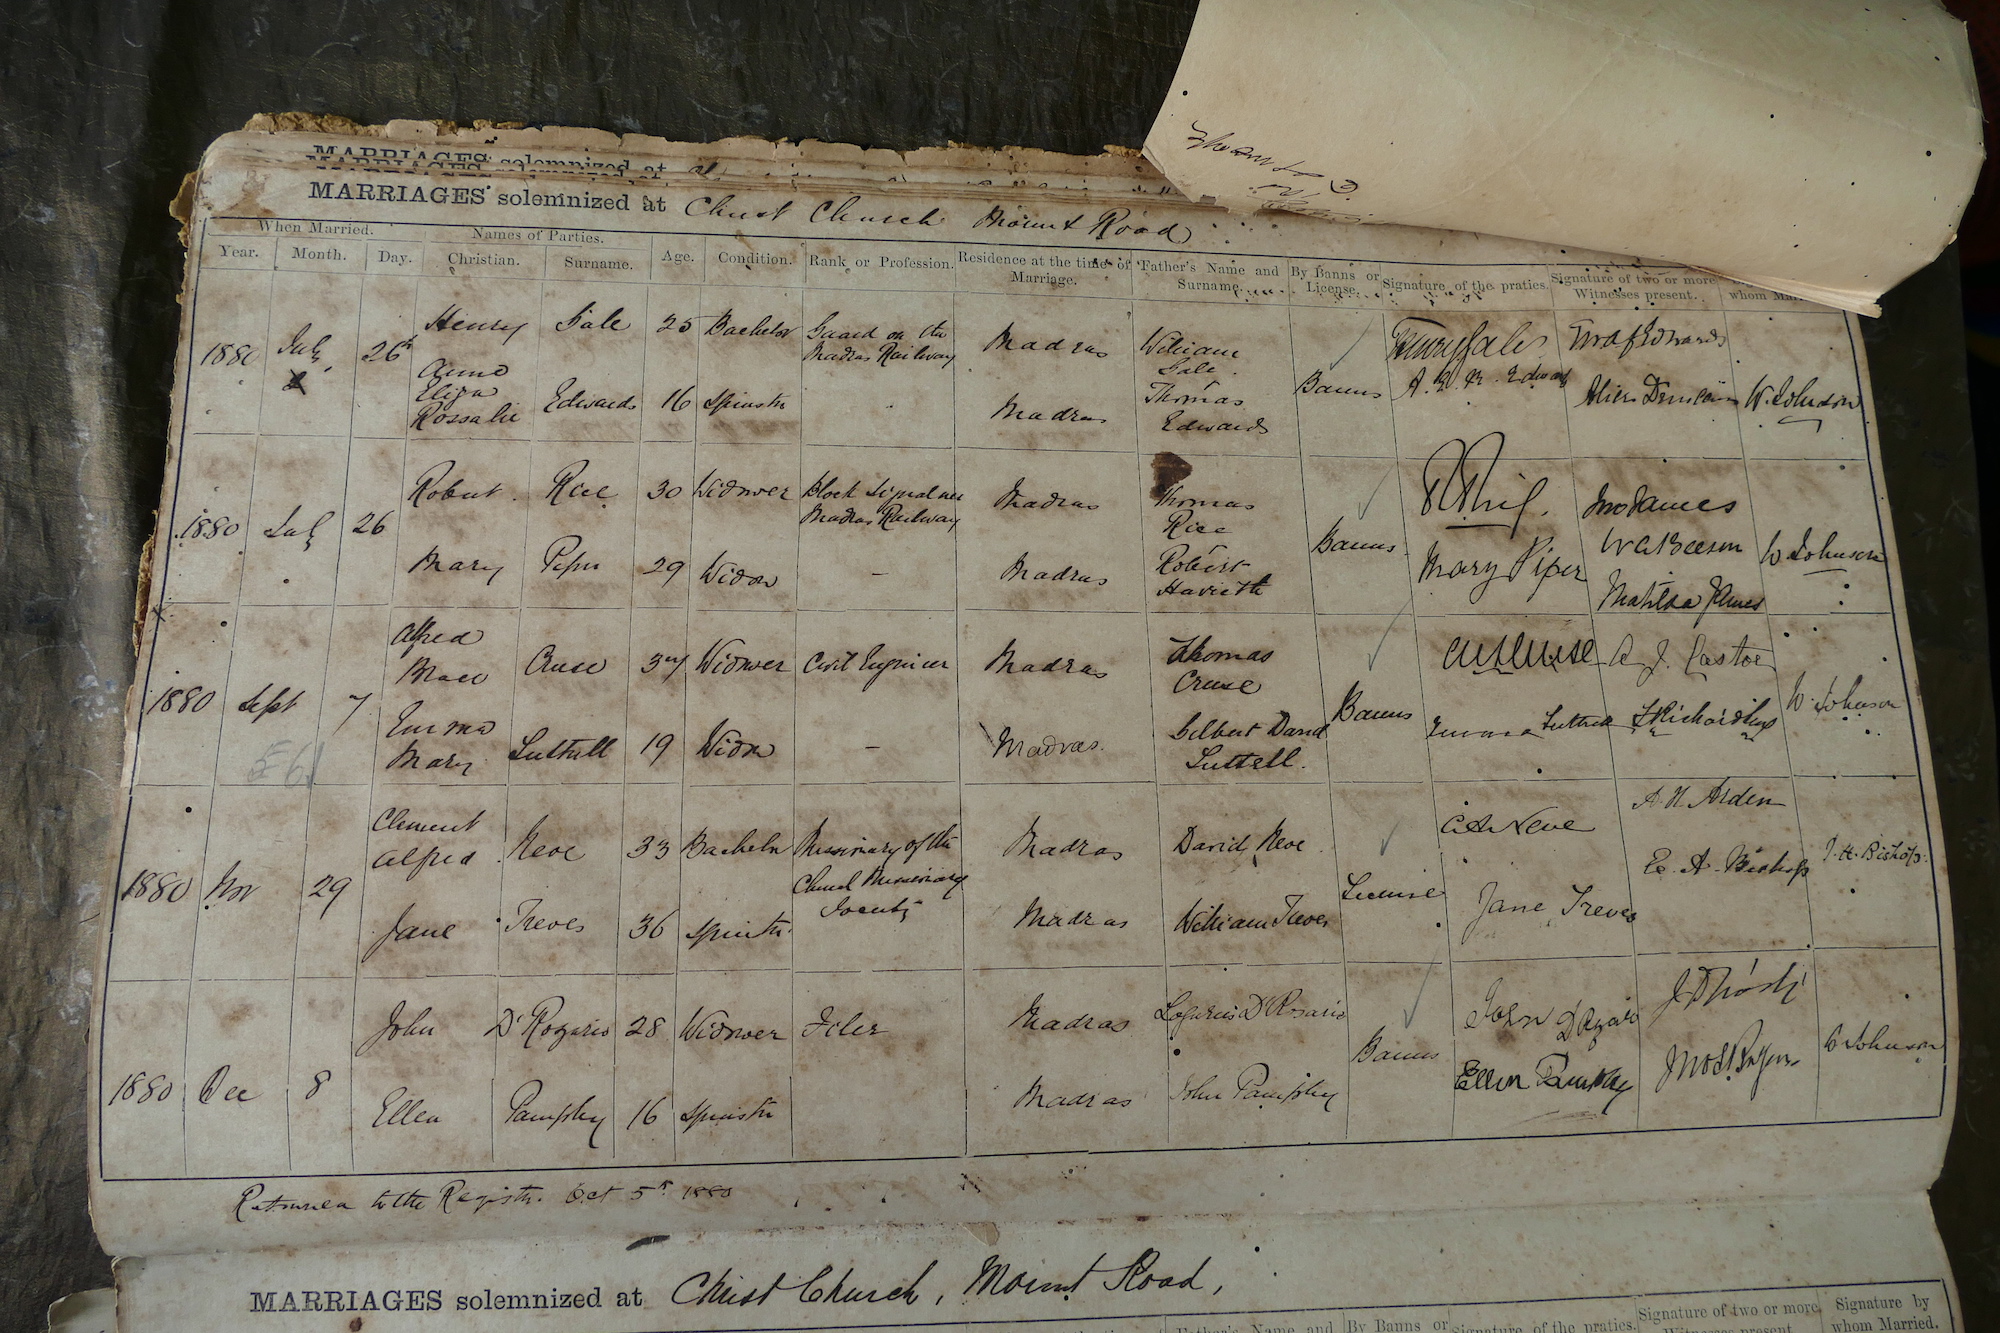 MARRIAGES solemnized at
MARRIAGES solemnized at
MARRIAGES solemnized at Christ Church Mount Road
When Married. Names of Parties.
Year. Month. Day. Christian. Surname. Age. Condition. Rank or Profession. Residence at the time of Marriage. Father's Name and Surname. By Banns or License. Signature of the praties. Signature of two or more Witnesses present. whom
1880 July 26th Henry Sale 25 Bachelor Guard on the Madras Railway Madras William Sale Banns Henry Sale
Anne Eliza Rossalie Edwards 16 Spinster Madras Thomas Edwards A. E. R. Edwards W. Johnson
1880 July 26 Robert Rice 30 Widower Block Signaller Madras Railway Madras Thomas Rice Banns Jno James
Mary Piper 29 Widow – Madras Robert Mary Piper Matilda James W Johnson
1880 Sept 7 Alfred Cruse 37 Widower Civil Engineer Madras Thomas Cruse Banns A J Castor
Emma Mary Luttrell 19 Widow – Madras Gilbert David Luttrell Emma Luttrell W. Johnson
1880 Nov 29 Clement Alfred Neve 33 Bachelor Missionary of the Church Missionary Society Madras David Neve License C A Neve A. H. Arden
Jane Treves 36 Spinster Madras William Treves Jane Treves E. A. Bishop J. H. Bishop
1880 Dec 8 John D'Rozario 28 Widower Filer Madras D'Rosario Banns John D'Rozario
Ellen Pamphy 16 Spinster Madras John Pamphy Ellen Pamphy W Johnson
Returned to the Registr. Oct 5th 1880
MARRIAGES solemnized at Christ Church, Mount Road,
Father's Name and By Banns or Signature of the praties. Signature of two or more Witnesses present. Signature by whom Married.